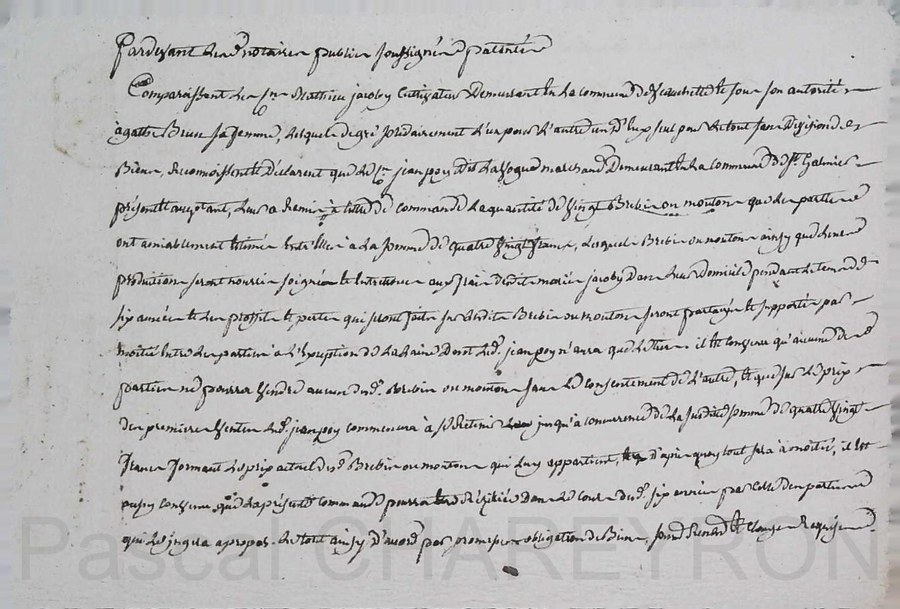 Pardevant les notaires publics soussignés patentés
Comparaissent les cns Mathieu jacoby Cultivateur Demeurant En La commune de et sous son autorité
agathe Brun sa femme, Lesquels de gré solidairement L'un pour L'autre un d'Eux seul pour Le tout sans Division de
Biens, Reconnoissent et Déclarent que Le cn jean poy dit Marchand Demeurant En La commune de St. Galmier
présent et acceptant, Leur a Remis à titre de commande La quantité de vingt Brebis ou moutons que Les parties
ont amiablement Estimés Entr'Elles à La somme de quatre vingt francs, Lesquels Brebis ou moutons ainsy que Leurs
productions seront nourris soignés et Entretenus aux frais desdits mariés jacoby dans Leur Domicile pendant Le tems de
six années et Les proffits et pertes qui seront faits sur Lesdits Brebis ou moutons seront partagés et supportés par
moitié Entre Les parties à L'Exception de La Laine dont Led. jean poy n'aura que Le tiers. il Est Convenu qu'aucune des
parties ne pourra Vendre aucun desd. Brebis ou moutons sans Le consentement de L'autre, Et que sur Le prix
des premieres Ventes Led. jean poy commencera à se Retenir jusqu'à concurrence de La susdite somme de quatre vingt
francs formant Le prix actuel desd. Brebis ou moutons qui Luy appartient, d'après quoy tout sera à moitié, il Est
aussy Convenu que La présente commande pourra Etre Résiliée Dans Le cours desd. six années par celle des parties
qui Le jugera apropos. Le tout ainsy d'accord par promesses obligation de Biens, soumission Renonciation Et Clauses Requises
Pascal CHAREYRON